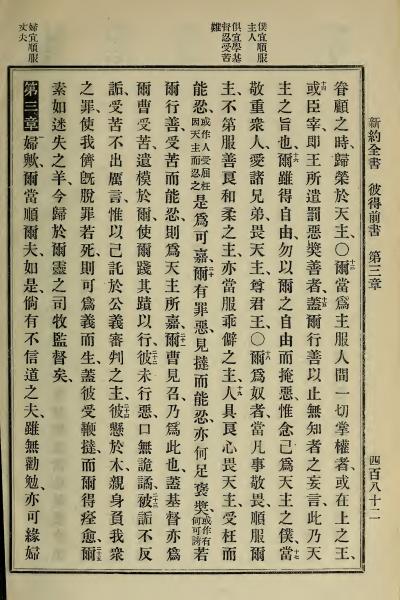 新約全書 彼得前書 第三章 四百八十二
僕宜順服
主人
俱宜學基
督忍受苦
難
婦宜順服
丈夫
眷顧之時歸榮於天主〇十三爾當為主服人間一切掌權者或在上之王、
十四或臣宰即王所遣罰惡獎善者十五蓋爾行善以止無知者之妄言此乃天
主之旨也十六爾雖得自由勿以爾之自由而掩惡惟念己為天主之僕十七當
敬重衆人愛諸兄弟畏天主尊君王〇十八爾為奴者當凡事敬畏順服爾
主不第服善良和柔之主亦當服乖僻之主十九人具良心畏天主受枉而
能忍或作人受屈枉因天主而忍之是為可嘉二十爾有罪惡見撻而能忍亦何足褒獎或作有何可誇若
爾行善受苦而能忍則為天主所嘉二十一爾曹見召乃為此也蓋基督亦為
爾曹受苦遺模於爾使爾踐其蹟以行二十二彼未行惡口無詭譎二十三被詬不反
詬受苦不出厲言惟以己託於公義審判之主二十四彼懸於木親身負我衆
之罪使我儕既脫罪若死則可為義而生蓋彼受鞭撻而爾得痊愈二十五爾
素如迷失之羊今歸於爾靈之司牧監督矣
第三章 婦歟爾當順爾夫如是倘有不信道之夫雖無勸勉亦可緣婦